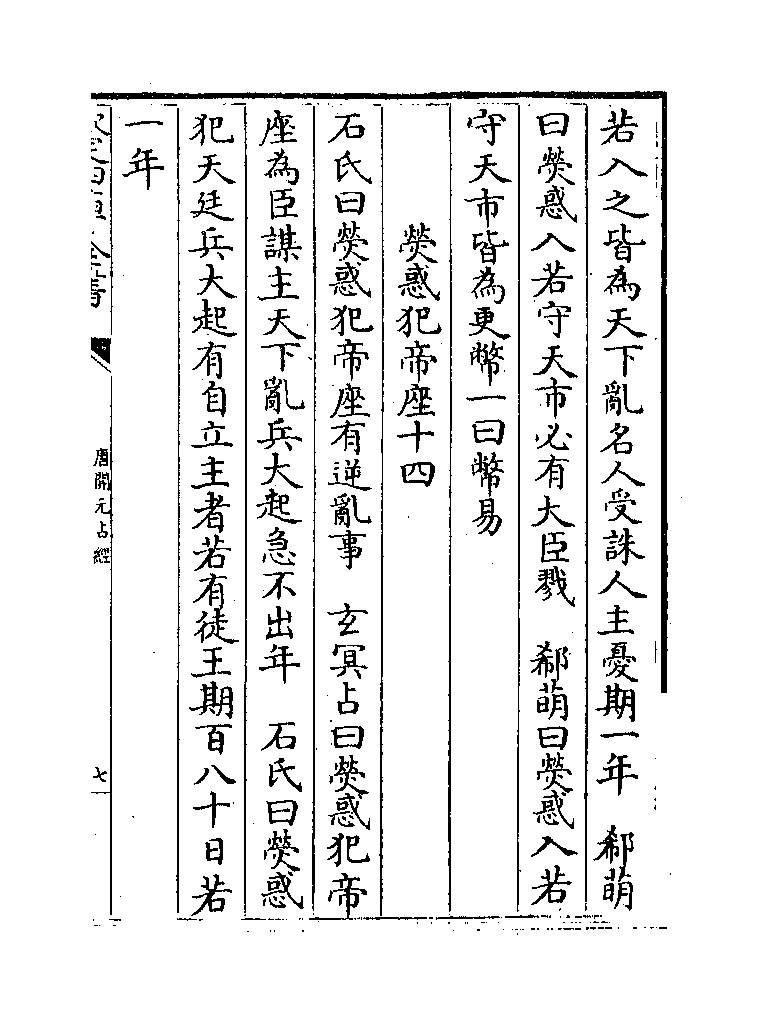 若入之皆為天下亂名人受誅人主憂期一年　郗萌
曰熒惑入若守天市必有大臣戮　郗萌曰熒惑入若
守天市皆為更幣一曰幣易
熒惑犯帝座十四
石氏曰熒惑犯帝座有逆亂事　玄冥占曰熒惑犯帝
座為臣謀主天下亂兵大起急不出年　石氏曰熒惑
犯天廷兵大起有自立主者若有徒王期百八十日若
一年
唐開元占經
七